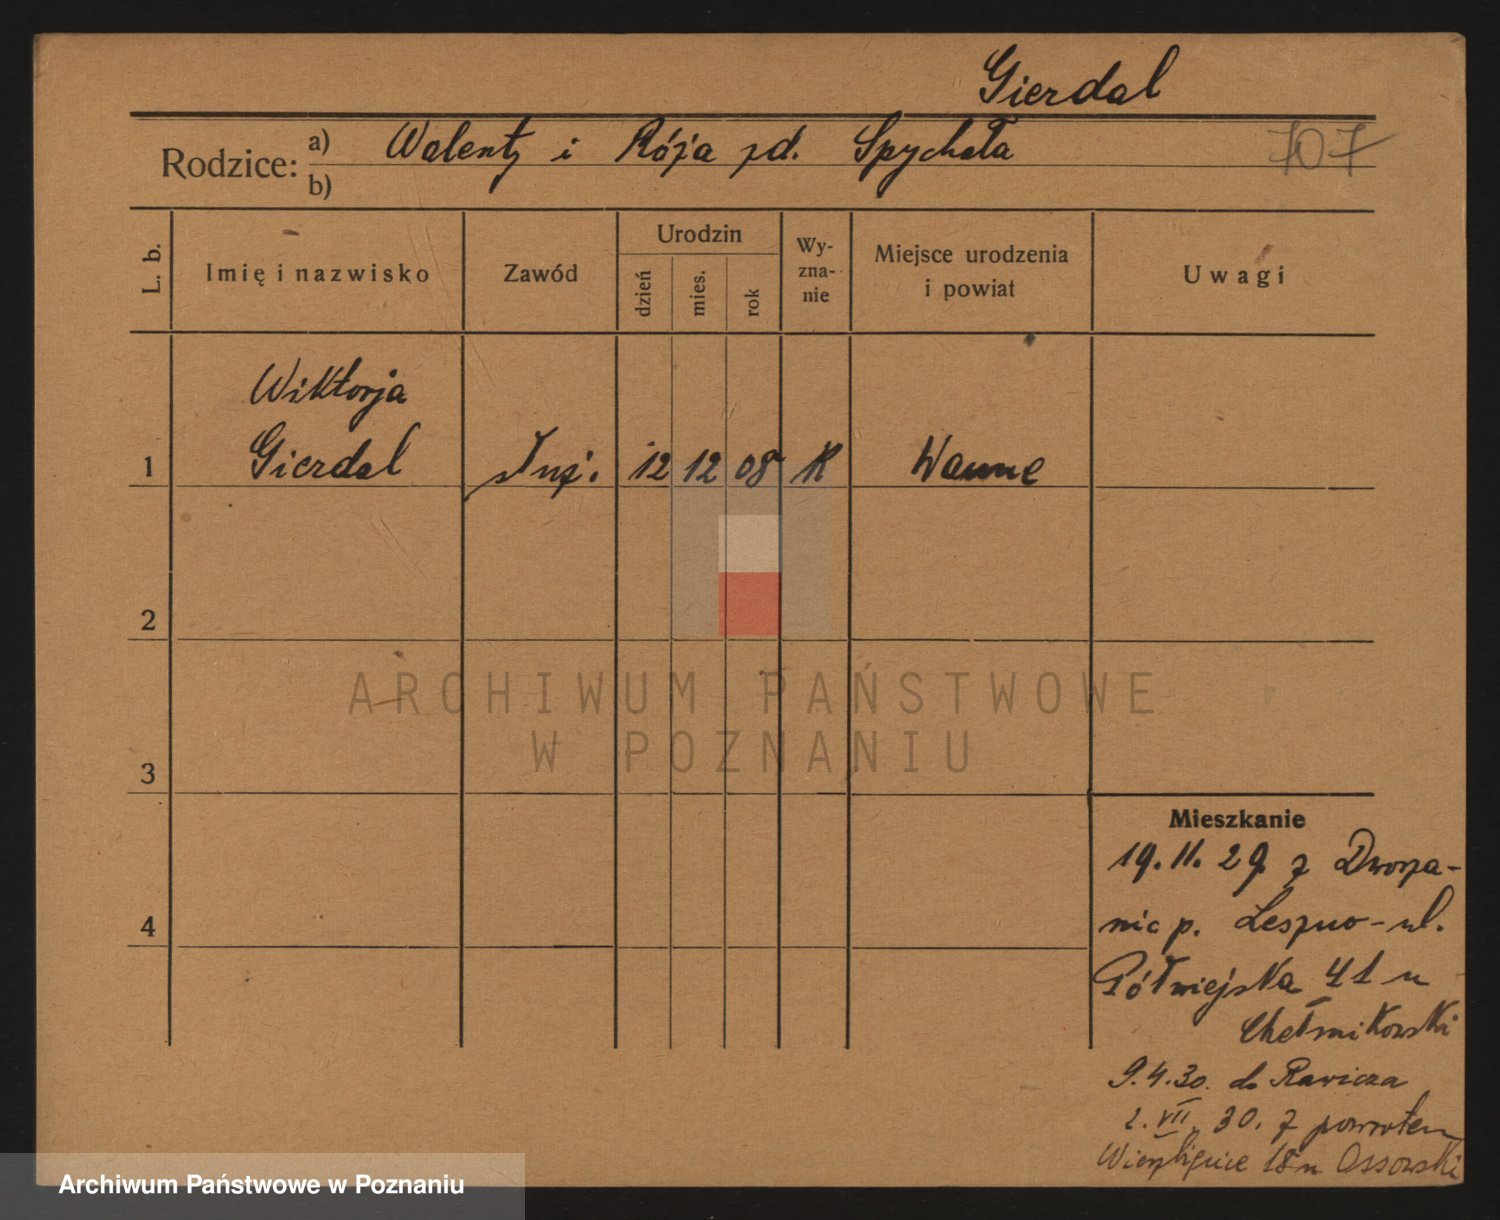 Gierdal
Rodzice: a) Walenty i Róża zd. Spychała
707
b)
L. b.
Imię i nazwisko
Zawód
Urodzin
dzień
mies.
rok
Wy-
zna-
nie
Miejsce urodzenia
i powiat
Uwagi
Wiktorja
1 Gierdal służ. 12 12 08 K Wanne
2
3
4
ARCHIWUM PAŃSTWOWE
W POZNANIU
Mieszkanie
19.11.29 z Dworza-
nic p. Leszno - ul.
Półwiejska 41 u
Chełmikowski
9.4.30. do Rawicza
2.VII.30. z powrotem
Wierzbięcice 18 u Ossowski
Archiwum Państwowe w Poznaniu